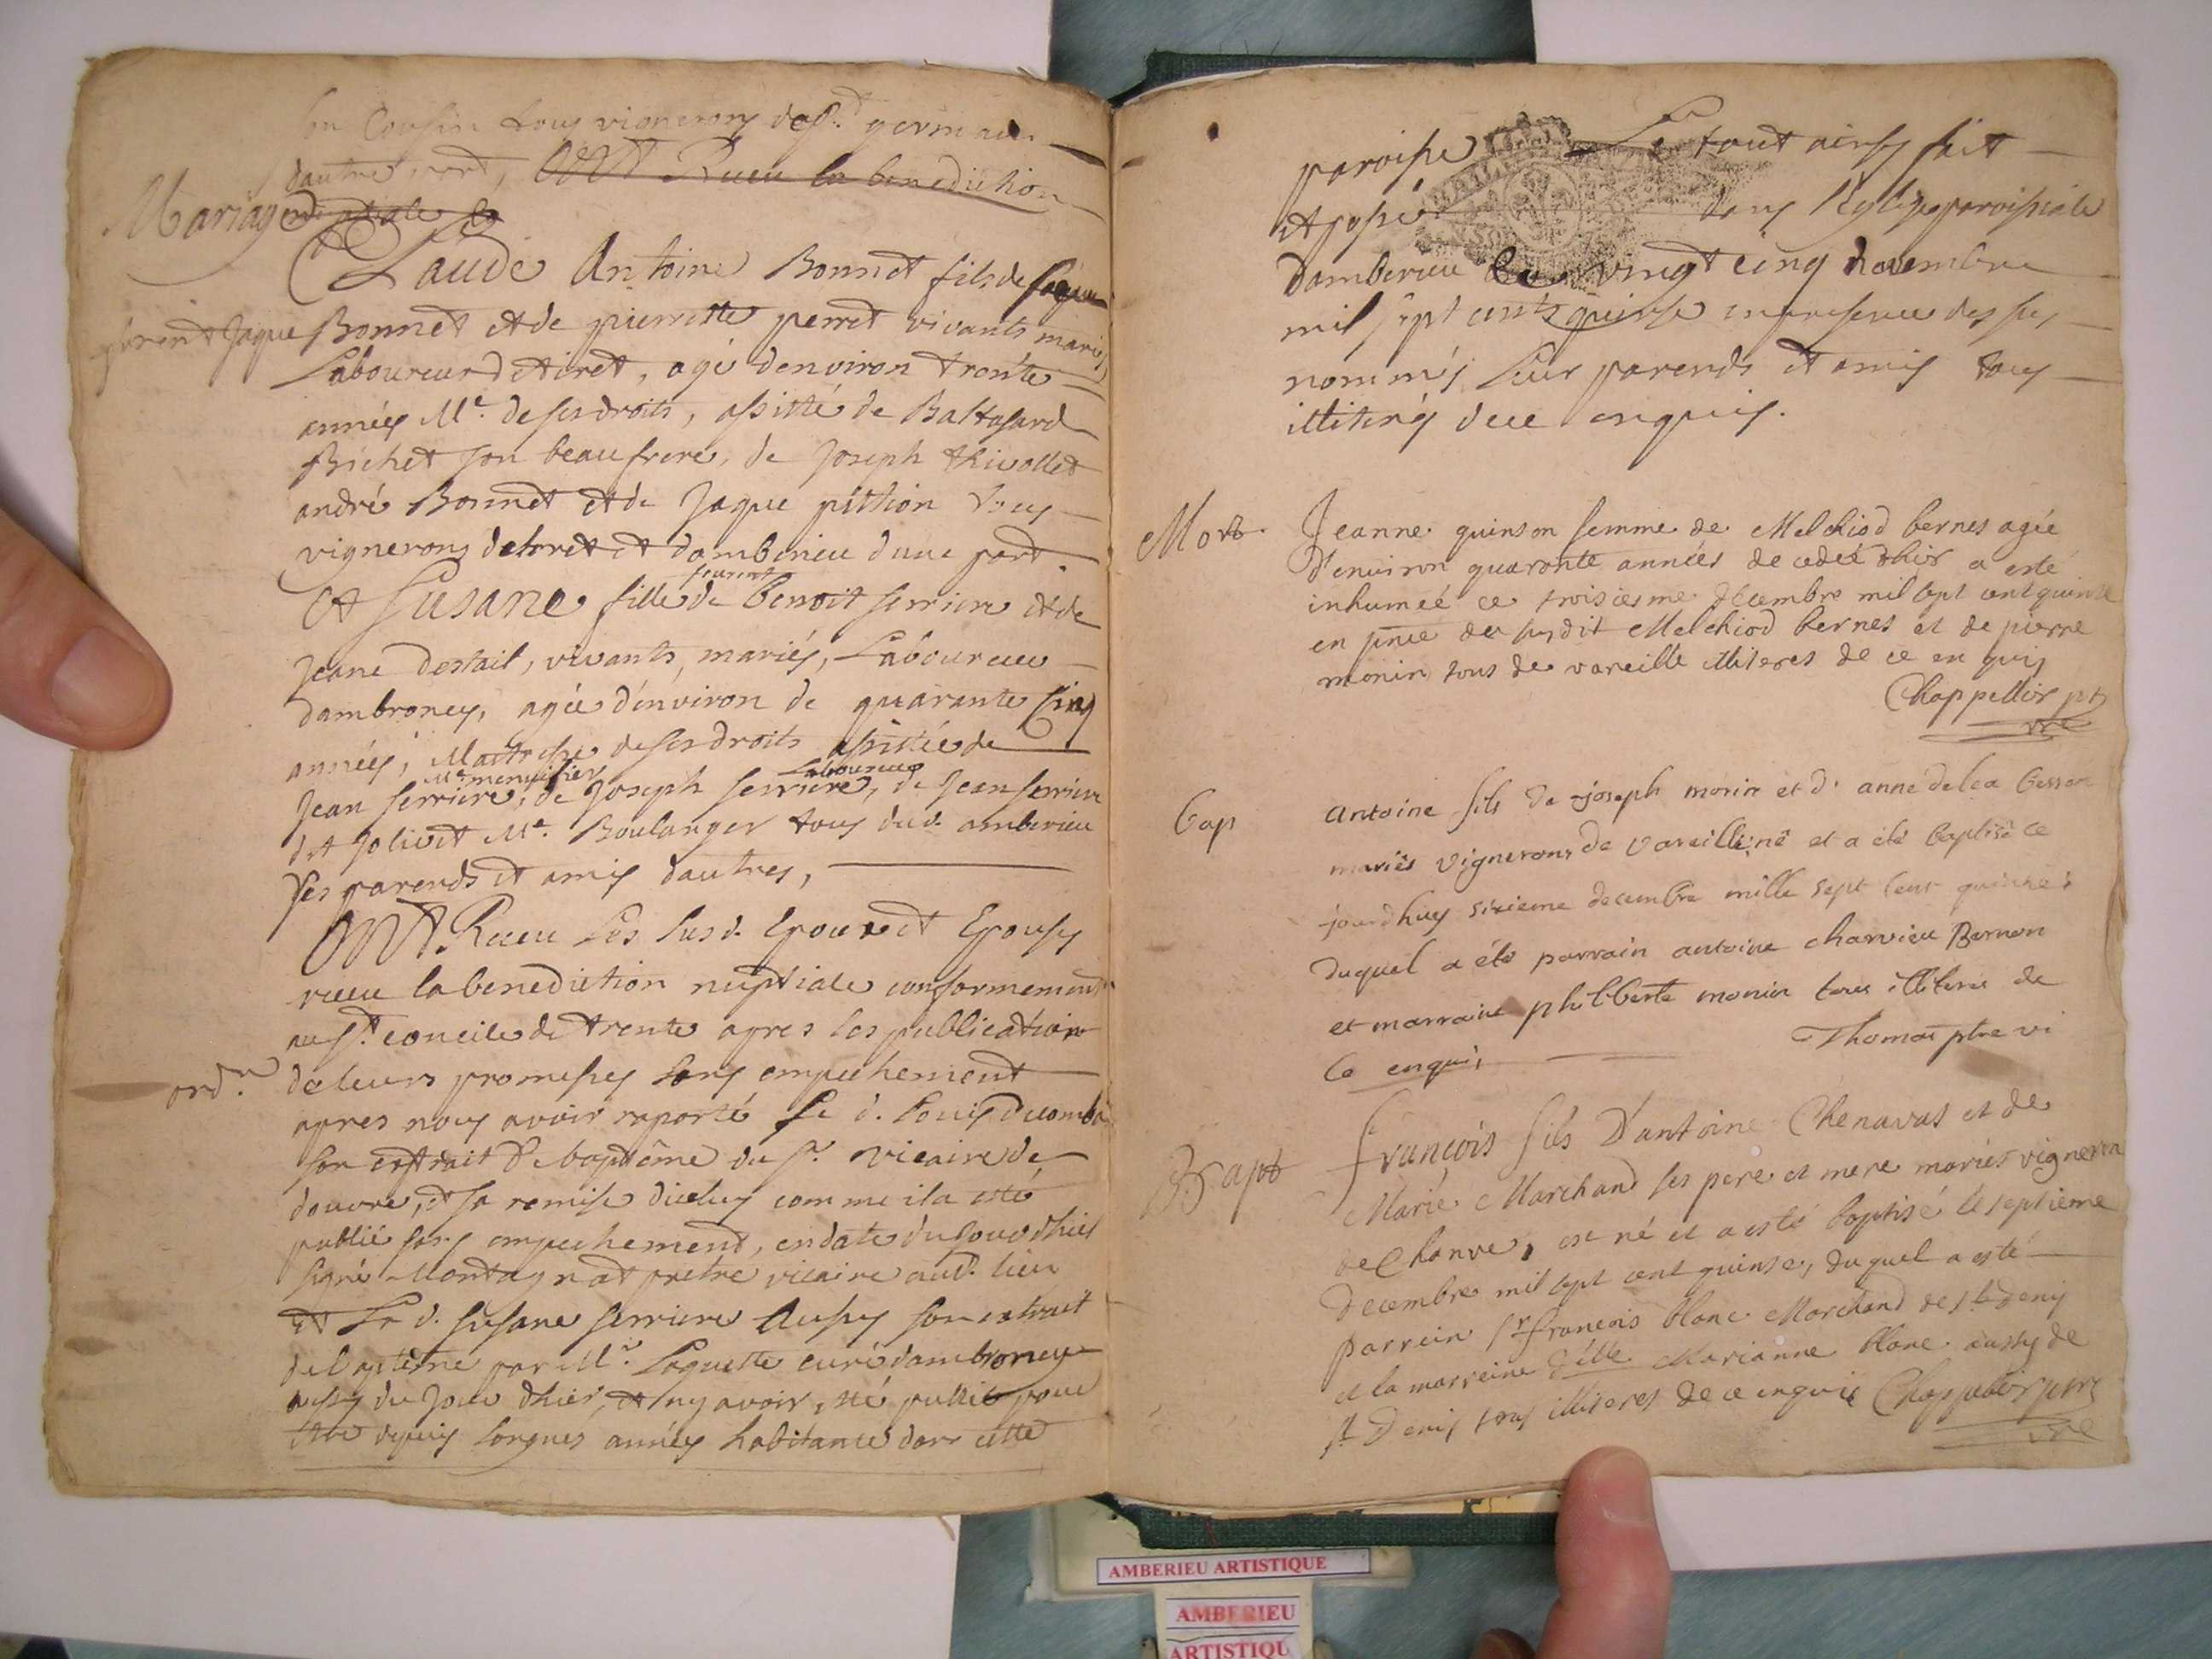 son Cousin tous vignerons de st. germain
d'autre part, ONT Receu la benediction
Mariage nuptiale
Claude Antoine Bonnet fils de
furent Jaque Bonnet et de pierrette perret vivants mariés
Laboureur de tiret, agé d'environ trente
années Me. de ses droits, assisté de Baltasard
Brichet son beaufrere, de Joseph thivollet
andré Bonnet et de Jaque pittion tous
vignerons de tiret et damberieu d'une part.
feurent
Et Susane fille de Benoit serriere et de
Jeane destail, vivants, mariés, Laboureur
dambroney, agée d'environ de quarante cinq
années, Maitresse de ses droits assistée de
Me menuisier Laboureur
Jean serriere, de Joseph serriere, de Jean serriere
dit Jolivet Me. Boulanger tous dud. amberieu
ses parends et amis d'autres,
ONT Receu Les susd. Epoux et Epouse
receu la benediction nuptiale conformement
au st. concile de trente apres les publications
ordn. de leurs promesses sans empechement
apres nous avoir raporté le d.
son extrait de baptême du sr. vicaire de
douvre, et sa remise diceluy comme il a esté
publié sans empechement, en date du jour d'hier
signé Montagnat pretre vicaire aud. lieu
et La d. susane serriere Aussy son extrait
de baptême par Mr. Loquette curé dambroney
aussy du jour d'hier, et ny avoir esté publié pour
être depuis longues années habitante dans cette
paroisse Le tout ainsy fait
et passé dans l'Eglise paroissiale
damberieu Ce vingt cinq novembre
mil sept cents quinse en presence des sus
nommés leur parends et amis tous
illiterés de ce enquis.
Mort. Jeanne quinson femme de Melchiod bernes agée
d'environ quarante années decedée d'hier a esté
inhumeé ce troisiesme decembre mil sept cent quinse
en pnce du susdit Melchiod bernes et de pierre
monin tous de vareille illiteres de ce enquis
Chappellos ptre
vre
bap antoine fils de joseph morin et d' anne delea besson
mariés vignerons de Vareille, né et a été baptisé ce
jourdhuy sixieme decembre mille sept cent quinze
duquel a été parrain antoine charvieu Bernon
et marraine philiberte monin tous illiteres de
ce enquis Thomas ptre vi
Bapt francois fils D'antoine Chenavas et de
Marie Marchand ses pere et mere mariés vigneron
de Chanve, est né et a esté baptisé le septieme
decembre mil sept cent quinse, duquel a esté
parrein sr. francois blanc Marchand de st. denis
et la marreine dele Marianne blanc aussy de
st Denis tous illiteres de ce enquis Chappellos ptre
vre
AMBERIEU ARTISTIQUE
AMBERIEU
ARTISTIQU